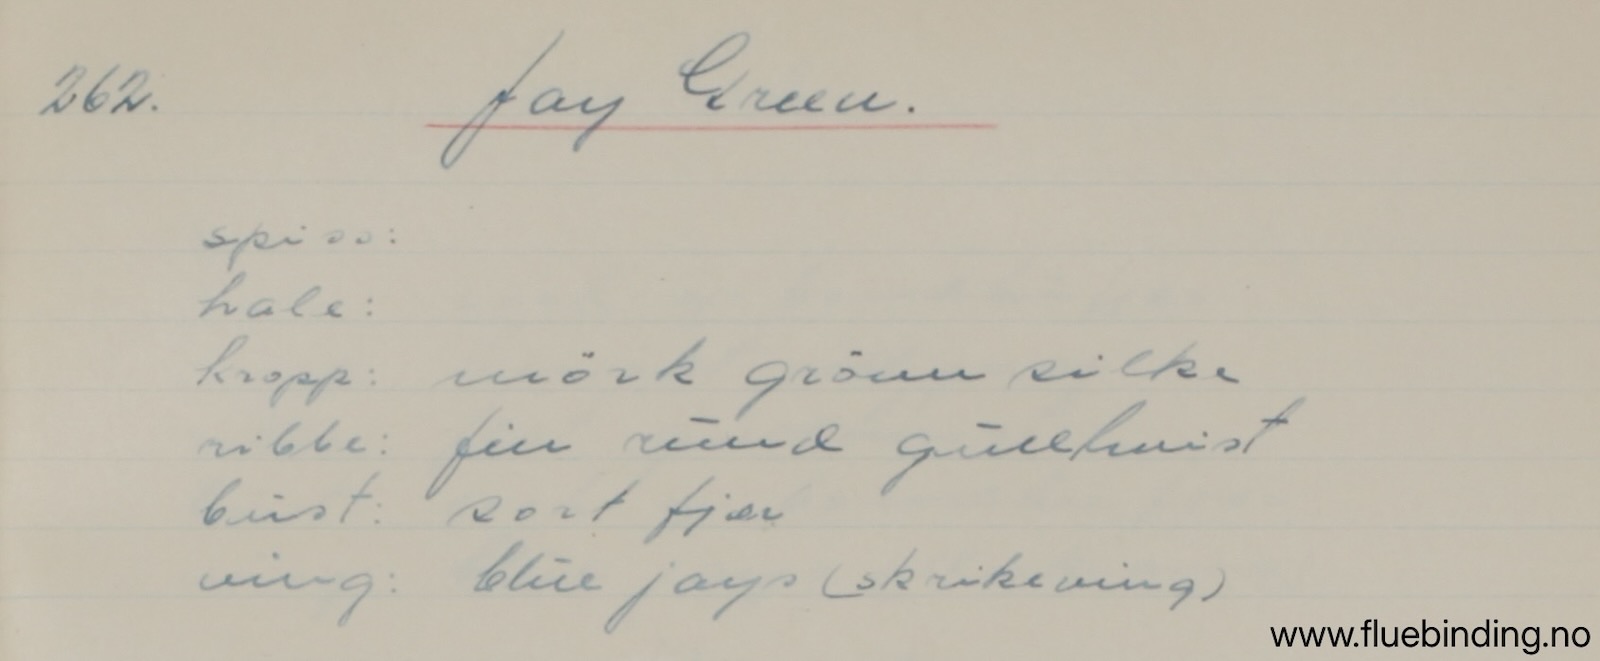 262. Jay Green.
spiss:
hale:
kropp: mörk grönn silke
ribbe: fin rund gulltvist
bust: sort fjær
ving: blue jays (skrikeving)
www.fluebinding.no